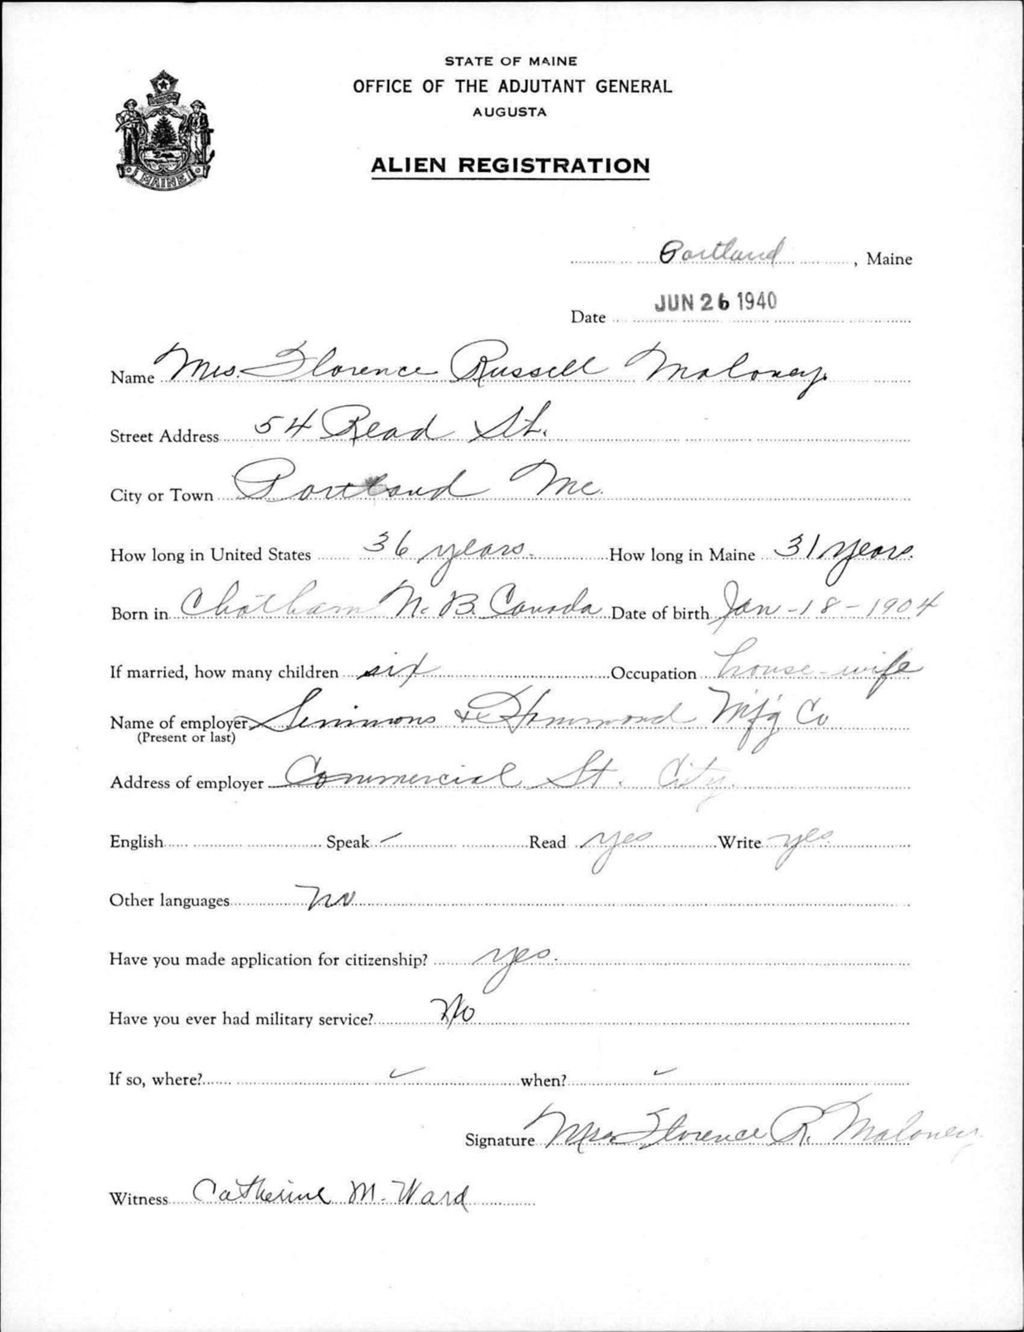 STATE OF MAINE
OFFICE OF THE ADJUTANT GENERAL
AUGUSTA
ALIEN REGISTRATION
MAINE
Portland, Maine
Date JUN 26 1940
Name Mrs. Florence Russell Maloney.
Street Address 54 Read St.
City or Town Portland Me.
How long in United States 36 years. How long in Maine 31 years.
Born in Chatham N. B. Canada Date of birth Jan - 18 - 1904
If married, how many children six Occupation house-wife
Name of employer Simmons & Hammond M'f'g Co
(Present or last)
Address of employer Commercial St. City.
English Speak - Read yes Write yes.
Other languages no
Have you made application for citizenship? yes.
Have you ever had military service? No
If so, where? - when? -
Signature Mrs Florence R. Maloney
Witness Catherine M. Ward